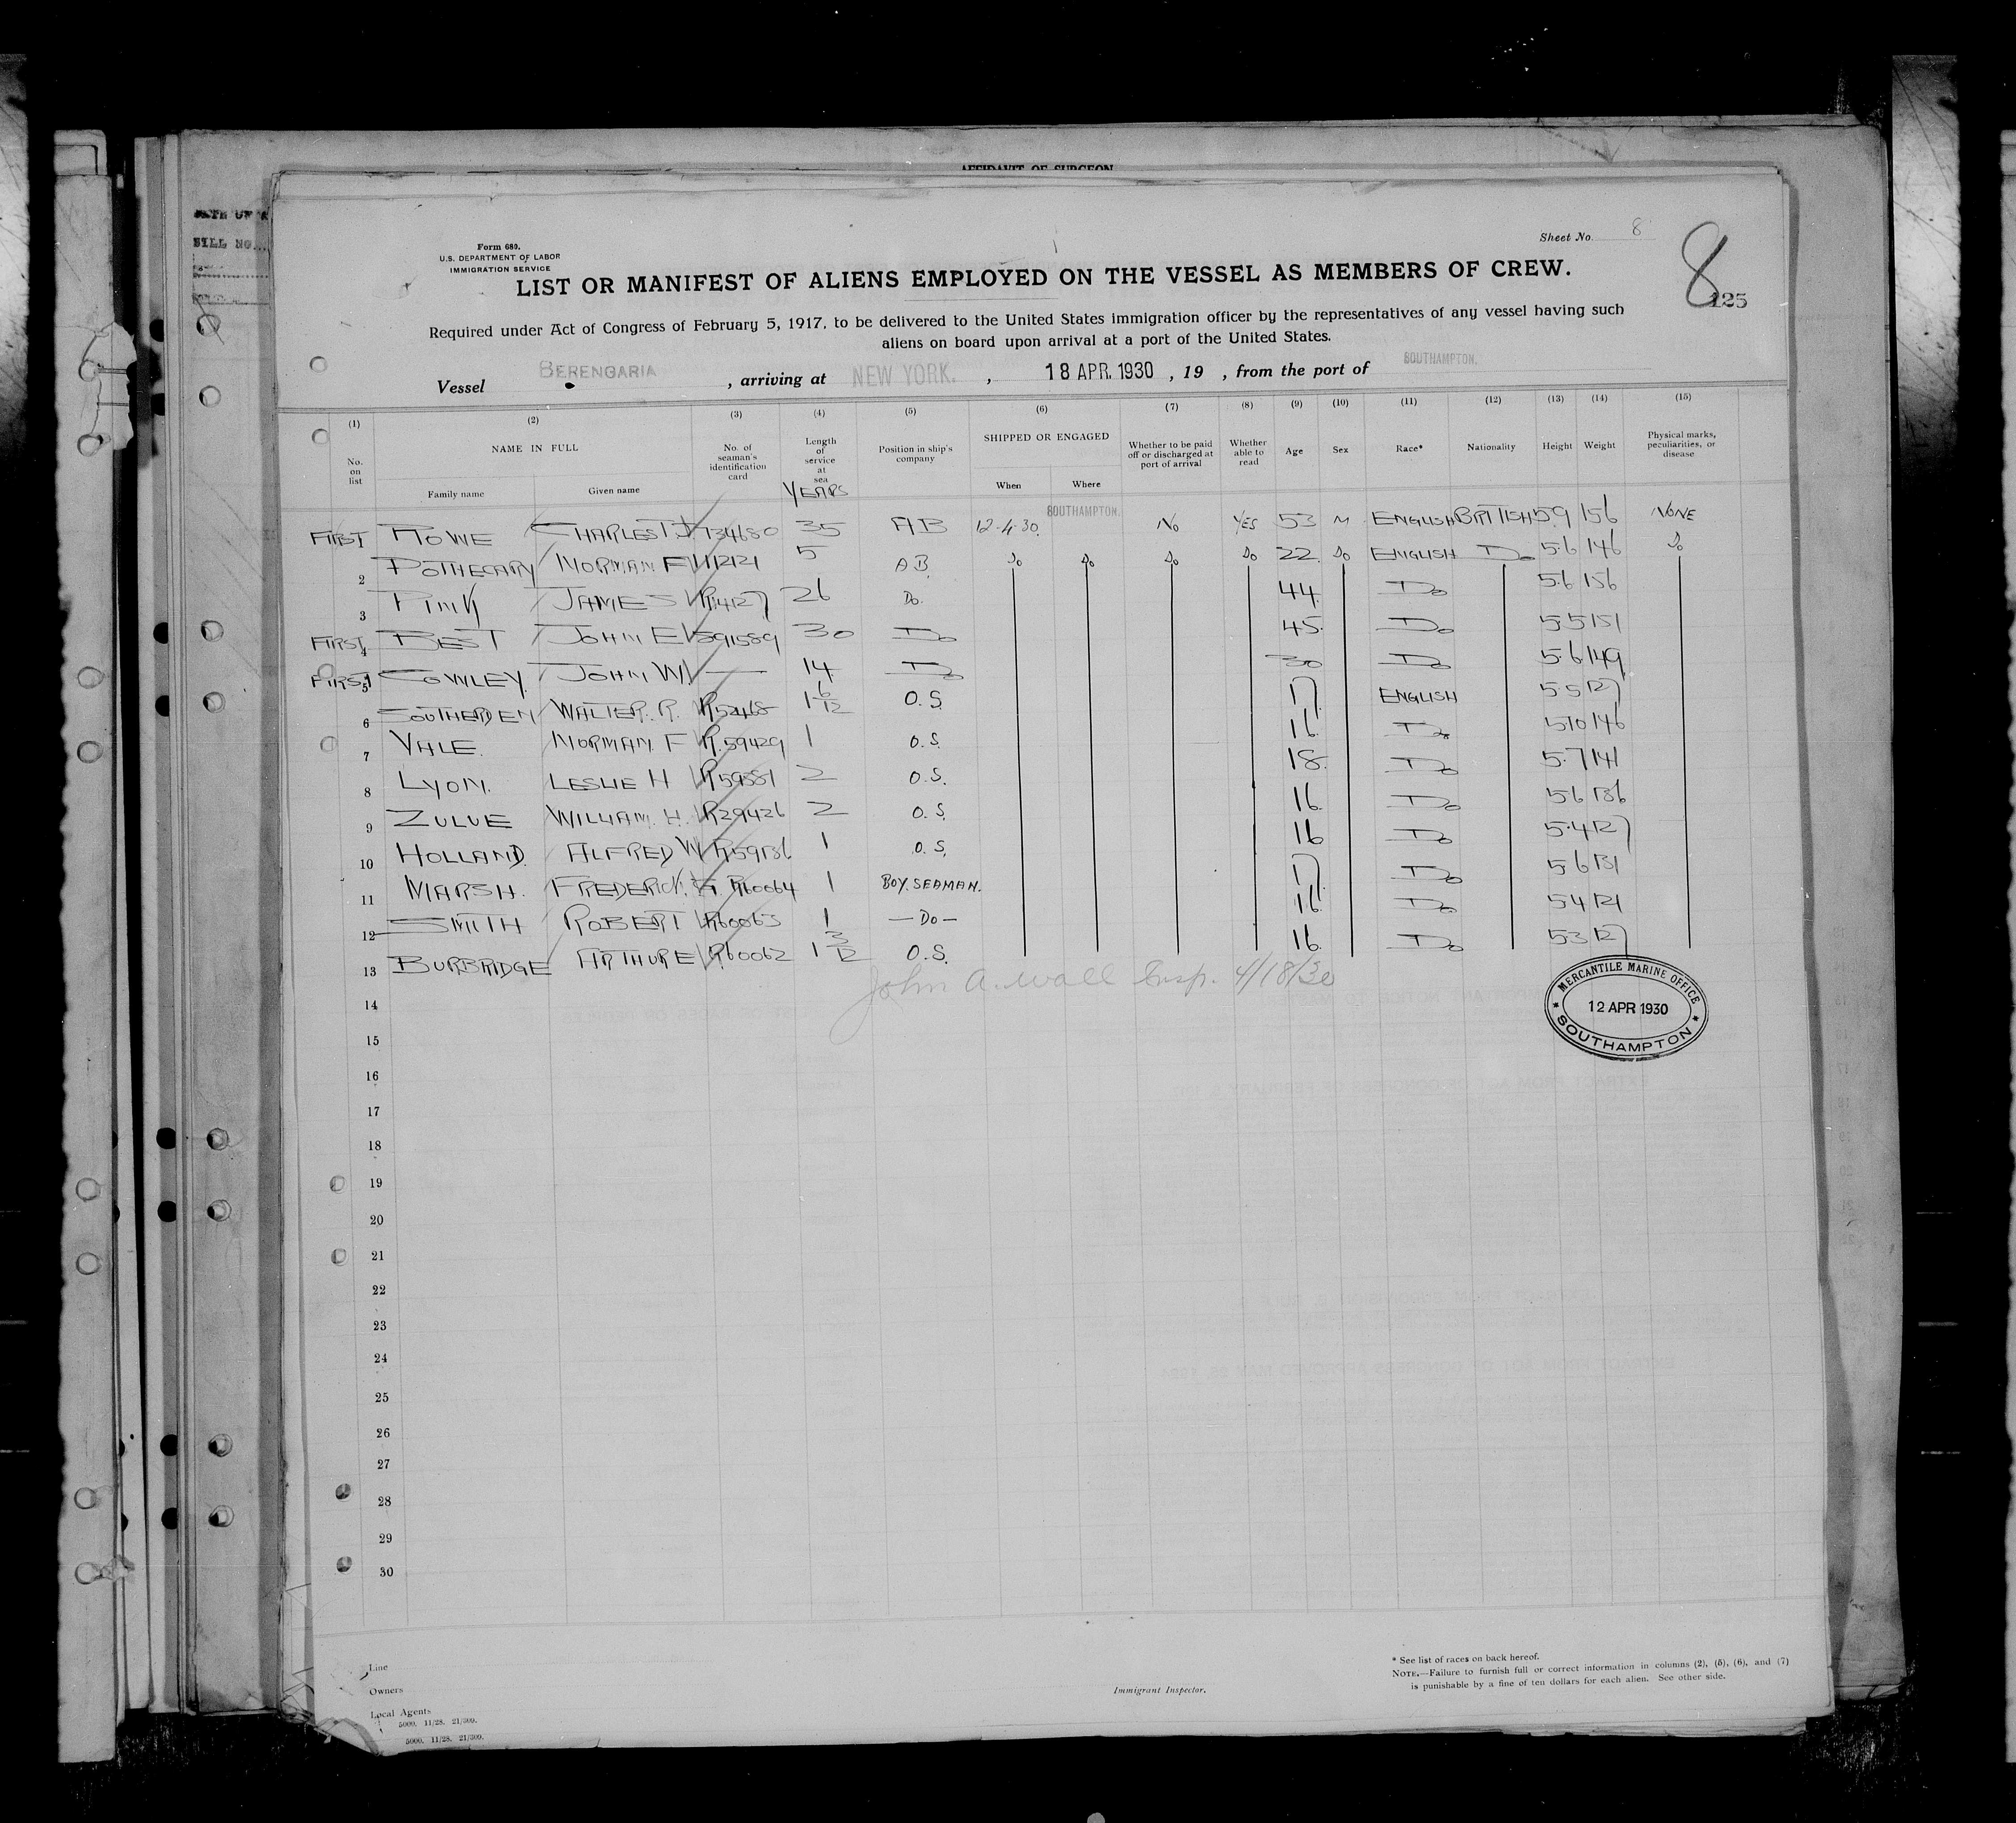 AFFIDAVIT OF SURGEON
BILL NO.
Sheet No. 8
8
125
Form 680.
U.S. DEPARTMENT OF LABOR
IMMIGRATION SERVICE
LIST OR MANIFEST OF ALIENS EMPLOYED ON THE VESSEL AS MEMBERS OF CREW.
Required under Act of Congress of February 5, 1917, to be delivered to the United States immigration officer by the representatives of any vessel having such
aliens on board upon arrival at a port of the United States.
Vessel BERENGARIA , arriving at NEW YORK. , 18 APR. 1930 , 19 , from the port of SOUTHAMPTON.
(1) (2) (3) (4) (5) (6) (7) (8) (9) (10) (11) (12) (13) (14) (15)
No. on list NAME IN FULL Family name Given name No. of seaman's identification card Length of service at sea YEARS Position in ship's company SHIPPED OR ENGAGED When Where Whether to be paid off or discharged at port of arrival Whether able to read Age Sex Race* Nationality Height Weight Physical marks, peculiarities, or disease
FIRST ROWE CHARLES 734680 35 AB 12-4-30. SOUTHAMPTON. No YES 53 M ENGLISH BRITISH 5.9 156 NONE
2 POTHECARY NORMAN F 112121 5 AB Do Do Do Do 22 Do ENGLISH Do 5.6 146 Do
3 PINK JAMES 26 Do. 44 Do 5.6 156
FIRST 4 BEST JOHN E 591589 30 Do 45 Do 5.5 151
FIRST 5 COWLEY JOHN W — 14 Do 30 Do 5.6 149
6 SOUTHERDEN WALTER. R. R52468 1 6/12 O.S. 17 ENGLISH 5.5 127
7 VALE. NORMAN. F R.59429 1 O.S. 16 Do 5.10 146
8 LYON. LESLIE H R59381 2 O.S. 18 Do 5.7 141
9 ZULUE WILLIAM. H. R29426 2 O.S. 16 Do 5.6 136
10 HOLLAND. ALFRED W R59136 1 O.S. 16 Do 5.4 127
11 MARSH. FREDERICK. G. R60064 1 BOY. SEAMAN. 17 Do 5.6 131
12 SMITH ROBERT R60063 1 — Do — 16 Do 5.4 121
13 BURBRIDGE ARTHUR E R60062 1 3/12 O.S. 16 Do 5.3 127
John A. Wall Insp. 4/18/30
MERCANTILE MARINE OFFICE
12 APR 1930
SOUTHAMPTON
14
15
16
17
18
19
20
21
22
23
24
25
26
27
28
29
30
Line
Owners
Local Agents
5000. 11/28. 21/309.
5000. 11/28. 21/309.
Immigrant Inspector.
* See list of races on back hereof.
NOTE.—Failure to furnish full or correct information in columns (2), (5), (6), and (7)
is punishable by a fine of ten dollars for each alien. See other side.